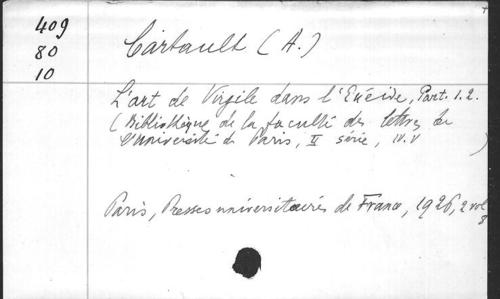 409
80
10
Cartault (A.)
L'art de Virgile dans l'Enéide, Part. 1.2.
(Bibliothèque de la faculté des lettres de
l'université de Paris, II série, IV.V)
Paris, Presses universitaires de France, 1926, 2 vol
8